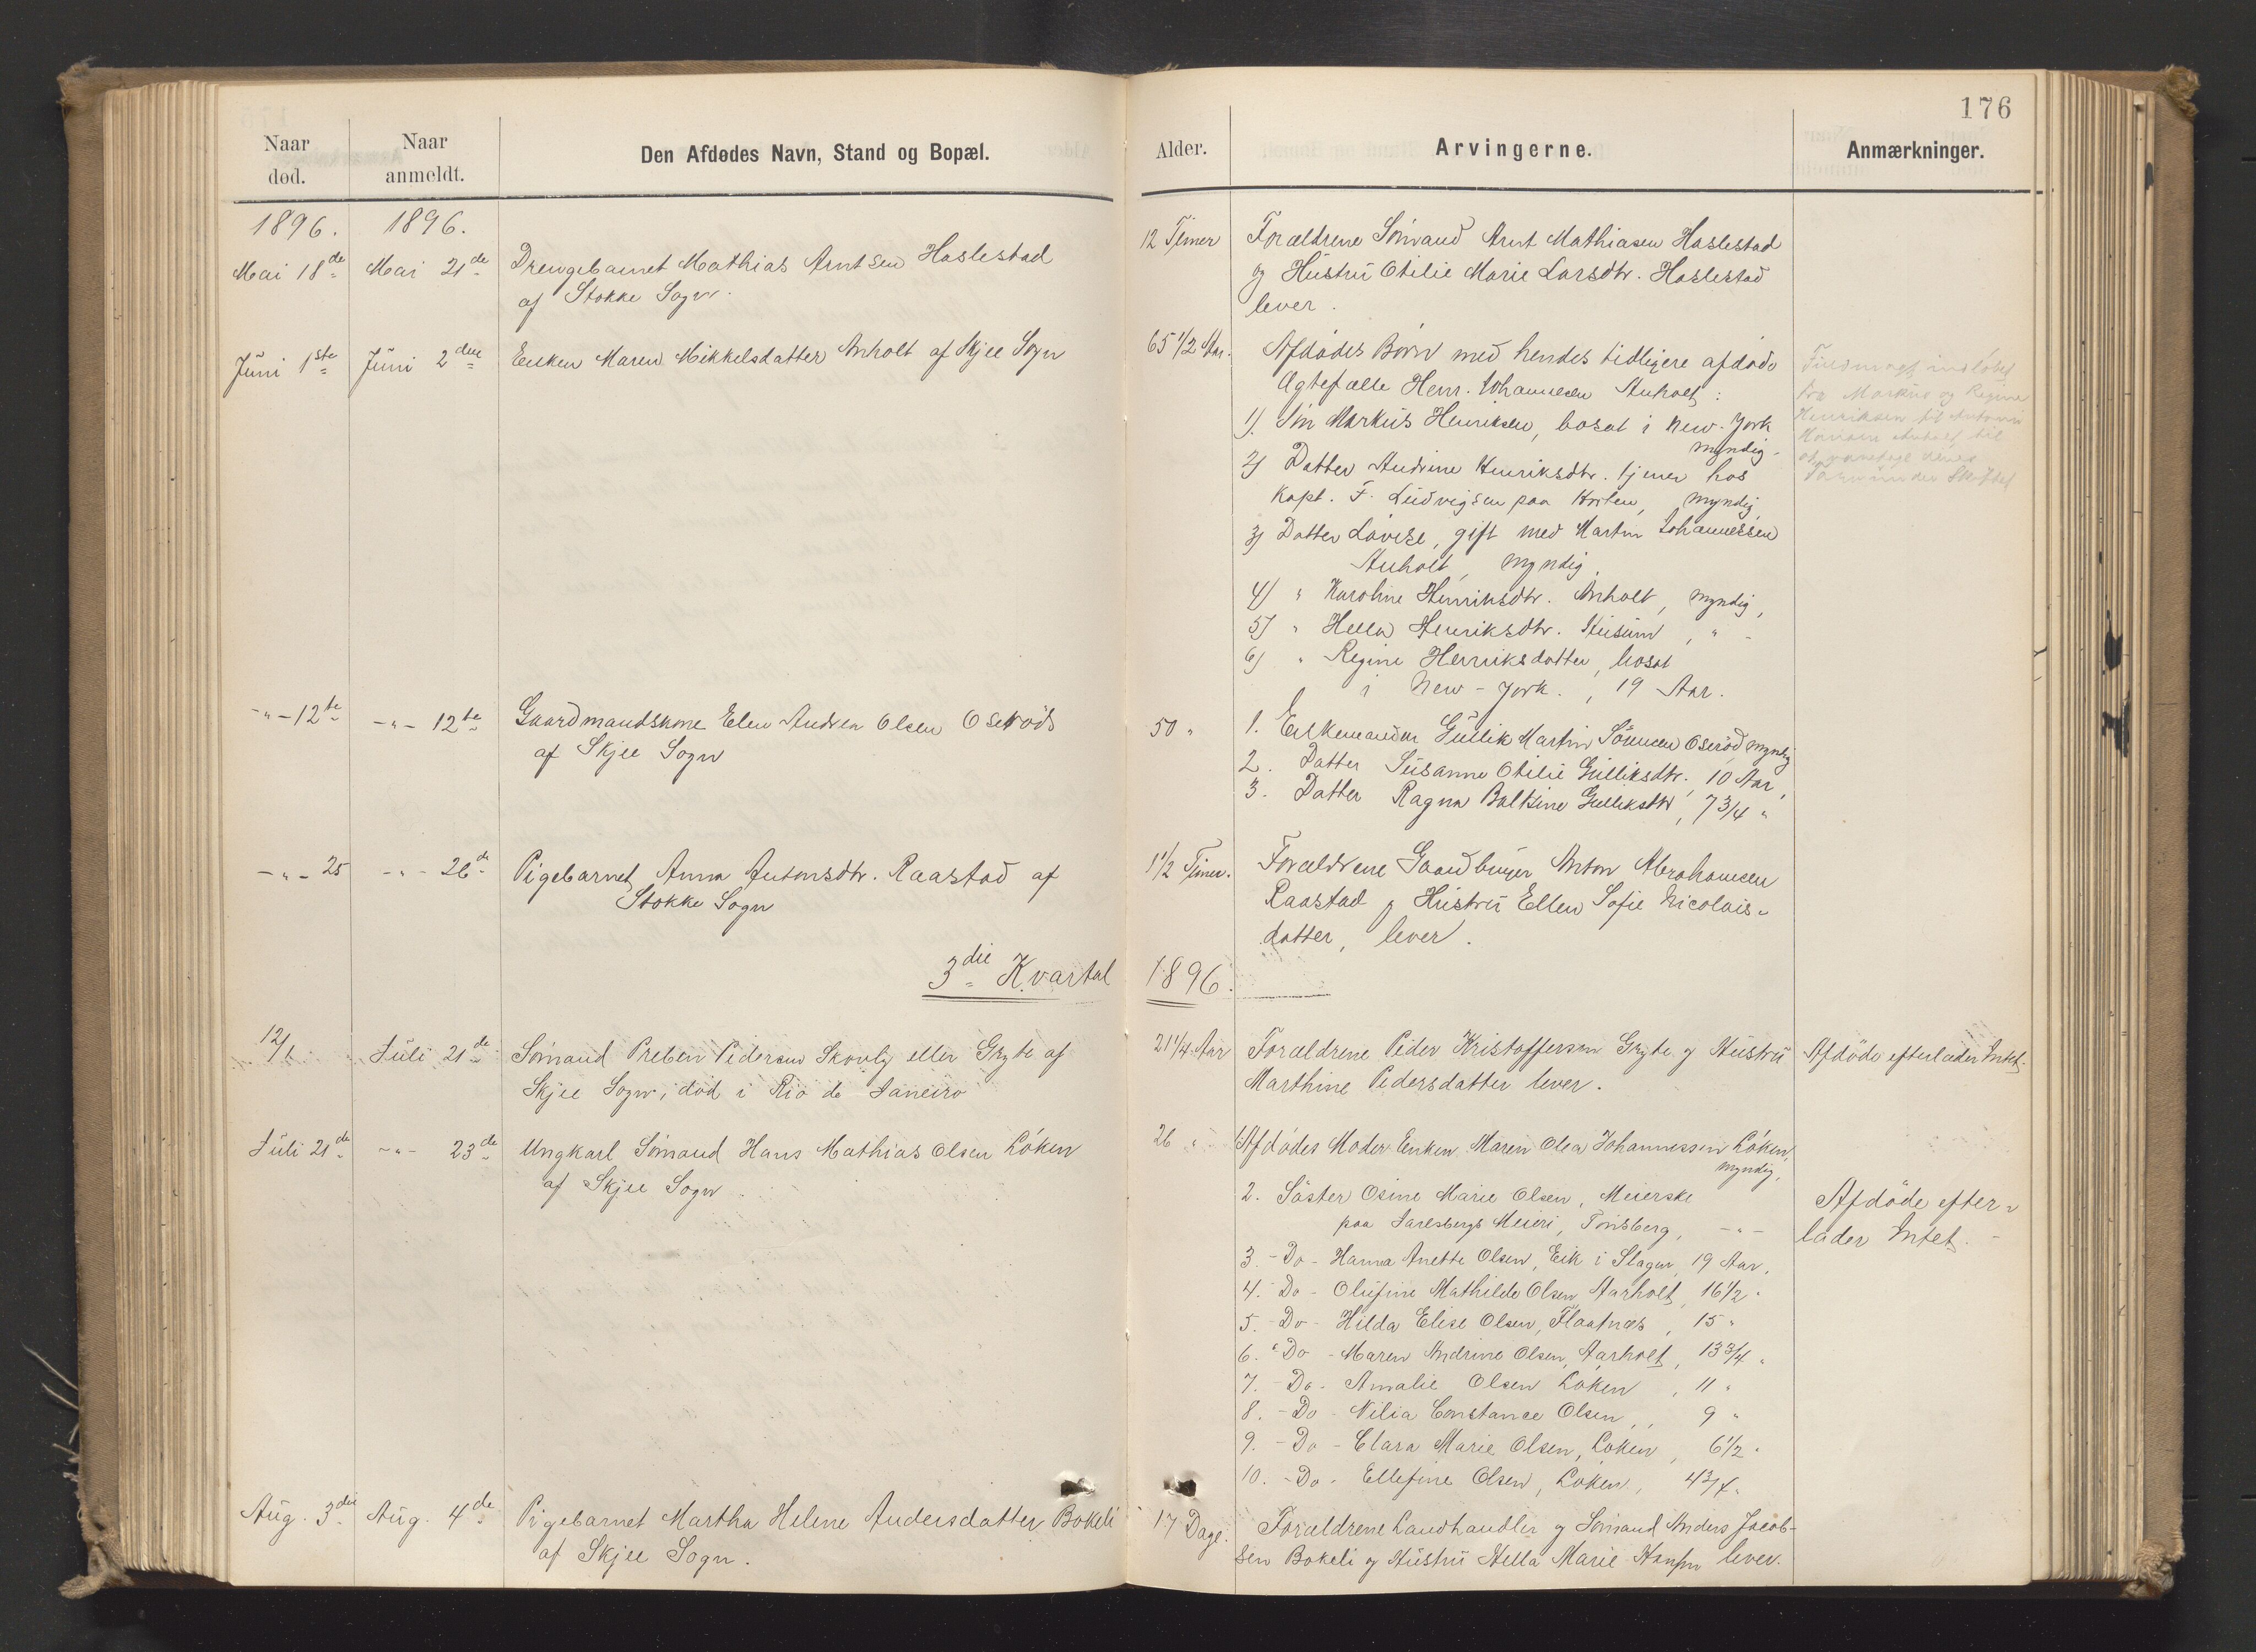 176
Naar død.
Naar anmeldt.
Den Afdødes Navn, Stand og Bopæl.
Alder.
Arvingerne.
Anmærkninger.
1896. 1896.
Mai 18de Mai 21de Drengebarnet Mathias Arntsen Haslestad
af Stokke Sogn.
12 Timer
Forældrene Sømand Arnt Mathiasen Haslestad
og Hustru Otilie Marie Larsdtr. Haslestad
lever.
Juni 1ste Juni 2den Enken Maren Mikkelsdatter Anholt af Skjee Sogn
65 1/2 Aar.
Afdødes Børn med hendes tidligere afdøde
Ægtefælle Henr. Johannesen Anholt:
1). Søn Markus Henriksen, bosat i New-York
myndig.
2) Datter Andrine Henriksdtr. tjener hos
Kapt. F. Ludvigsen paa Horten, myndig,
3) Datter Lovise, gift med Martin Johannessen
Anholt, myndig.
4) " Karoline Henriksdtr. Anholt, myndig,
5) " Hella Henriksdtr. Husum, " -
6) " Regine Henriksdatter, bosat
i New-York., 19 Aar.
Markus og Regine
Henriksen til
-"- 12te -"- 12te Gaardmandskone Elen Andrea Olsen Oserød
af Skjee Sogn
50 "
1. Enkemanden Gullik Martin Sørensen Oserød myndig
2. Datter Susanne Otilie Gulliksdtr. 10 Aar,
3. Datter Ragna Baltsine Gulliksdtr, 7 3/4 "
-"- 25 -"- 26de Pigebarnet Anna Antonsdtr. Raastad af
Stokke Sogn
1 1/2 Timer.
Forældrene Gaardbruger Anton Abrahamsen
Raastad og Hustru Ellen Sofie Nicolais-
datter, lever.
3die Kvartal 1896.
12/1 Juli 21de Sømand Preben Pedersen Skovly eller Gryte af
Skjee Sogn, død i Rio de Janeiro
21 1/4 Aar
Forældrene Peder Kristoffersen Gryte og Hustru
Marthine Pedersdatter lever.
Afdøde efterlader Intet.
Juli 21de -"- 23de Ungkarl Sømand Hans Mathias Olsen Løken
af Skjee Sogn
26 "
1. Afdødes Moder Enken Maren Olea Johannessen Løken,
myndig,
2. Søster Osine Marie Olsen, Meierske
paa Jarlsbergs Meieri, Tønsberg, -"-
3. -Do- Hanna Anette Olsen, Eik i Slagen, 19 Aar,
4. -Do- Olufine Mathilde Olsen Aarholt, 16 1/2 "
5. -Do- Hilda Elise Olsen, Flaatnæs, 15 "
6. -Do- Maren Andrine Olsen, Aarholt, 13 3/4 "
7. -Do- Amalie Olsen Løken, 11 "
8. -Do- Nilia Constance Olsen, , 9 "
9. -Do- Clara Marie Olsen, Løken, 6 1/2 "
10. -Do- Ellefine Olsen, Løken, 4 3/4 "
Afdøde efter-
lader Intet. -
Aug. 3die Aug. 4de Pigebarnet Martha Helene Andersdatter Bokeli
af Skjee Sogn.
17 Dage.
Forældrene Landhandler og Sømand Anders Jacob-
sen Bokeli og Hustru Hella Marie Hansen lever.